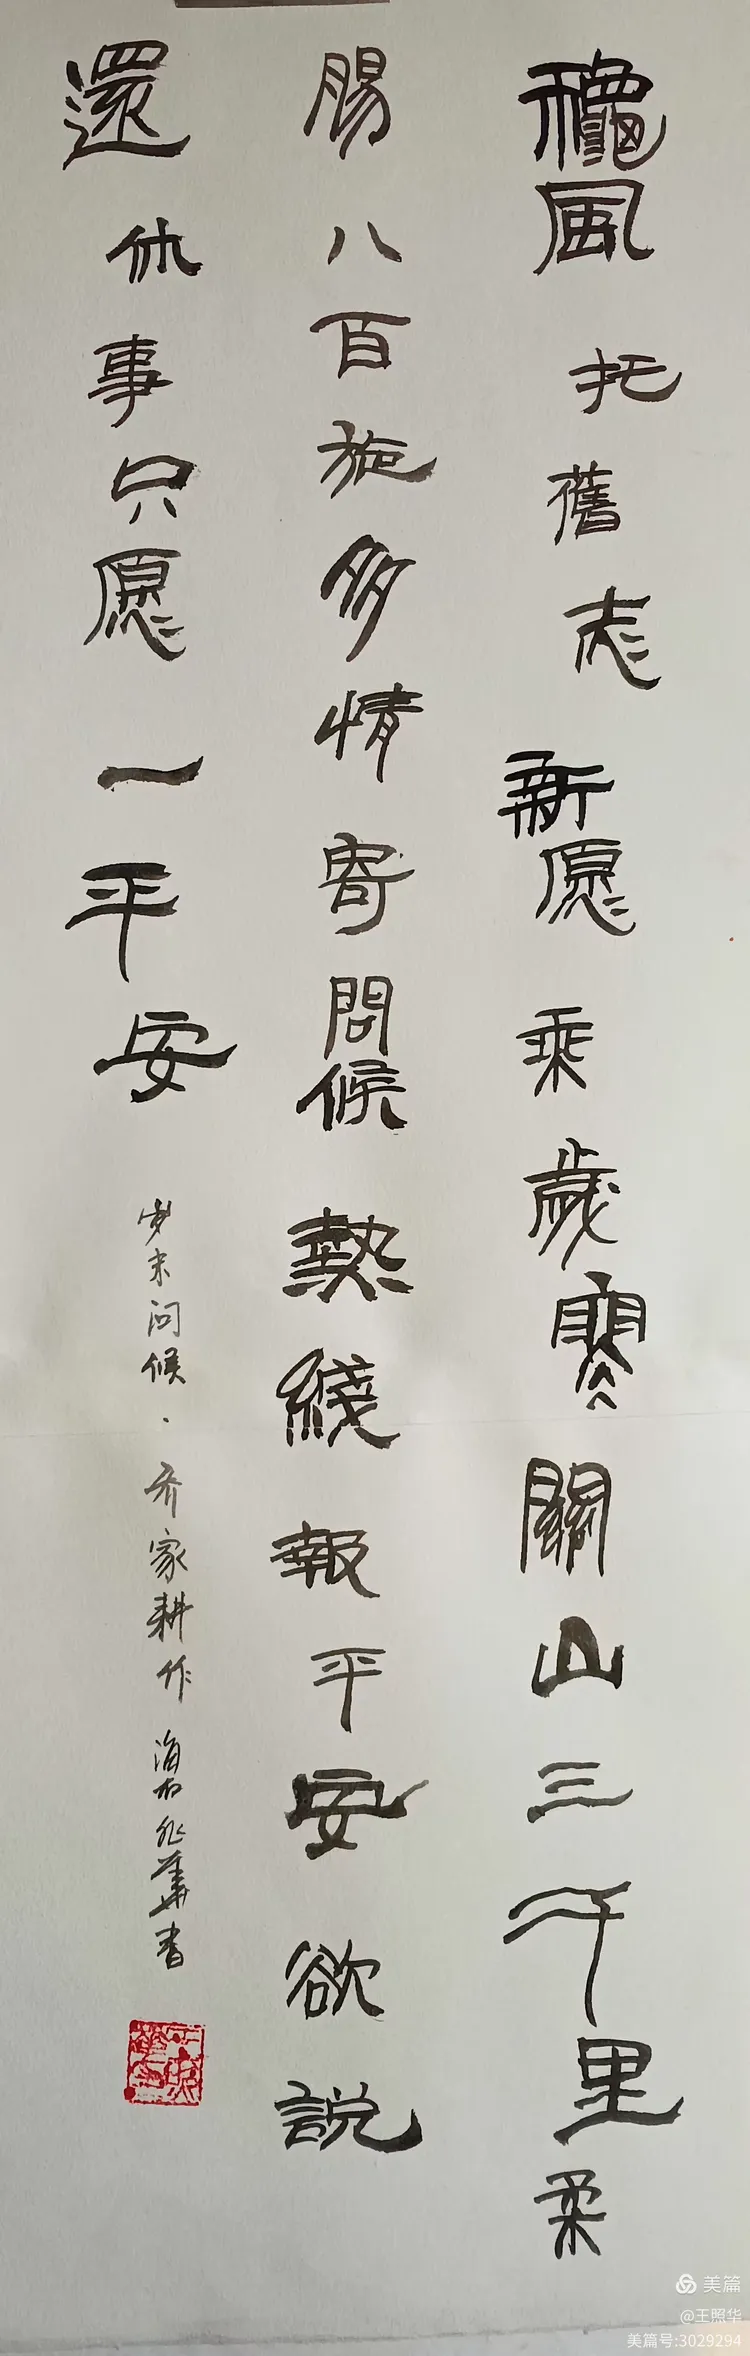 龝風托舊志新愿乘歲寒關山三千里柔
腸八百施多情寄問候熱綫報平安欲說
還休事只愿一平安
岁末问候·齐家耕作 華书
美篇
@王照华
美篇号:3029294